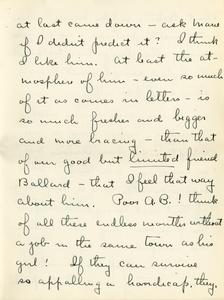 at last came down - ask Mane
if I didn't predict it? I think
I like him. At least the at-
mosphere of him - even so much
of it as comes in letters - is
so much fresher and bigger
and more bracing - than that
of our good but limited friend
Ballard - that I feel that way
about him. Poor A.B.! think
of all these endless months without
a job in the same town as his
girl! If they can survive
so appalling a handicap, they